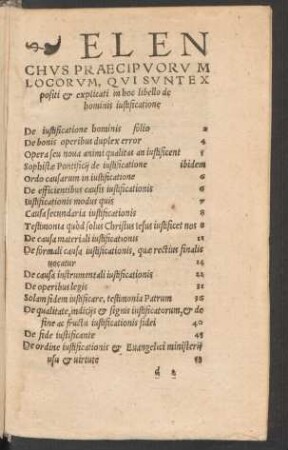 ELEN
CHVS PRAECIPVORVM
LOCORVM, QVI SVNT EX
positi & explicati in hoc libello de
hominis iustificatione
De iustificatione hominis folio 2
De bonis operibus duplex error 4
Opera seu noua animi qualitas an iustificent 5
Sophistæ Pontificij de iustificatione ibidem
Ordo causarum in iustificatione 6
De efficientibus causis iustificationis 6
Iustificationis modus quis 7
Causa secundaria iustificationis 8
Testimonia quòd solus Christus Iesus iustificet nos 8
De causa materiali iustificationis 11
De formali causa iustificationis, quæ rectius finalis
uocatur 14
De causa instrumentali iustificationis 22
De operibus legis 31
Solam fidem iustificare, testimonia Patrum 36
De qualitate, indicijs & signis iustificatorum, & de
fine ac fructu iustificationis fidei 40
De fide iustificante 45
De ordine iustificationis & Euangelici ministerij
usu & uirtute